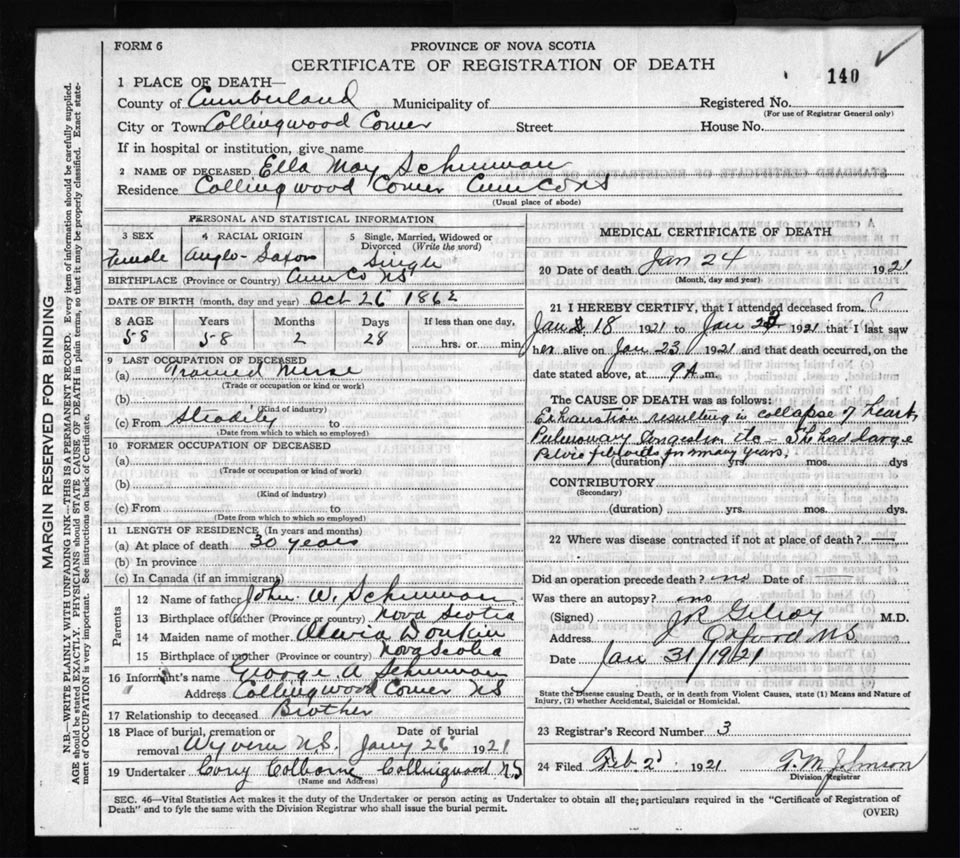 FORM 6
PROVINCE OF NOVA SCOTIA
CERTIFICATE OF REGISTRATION OF DEATH
140
1 PLACE OF DEATH—
County of Cumberland Municipality of Registered No.
(For use of Registrar General only)
City or Town Collingwood Corner Street House No.
If in hospital or institution, give name
2 NAME OF DECEASED Ella May Schurman
Residence Collingwood Corner Cum Co NS
(Usual place of abode)
PERSONAL AND STATISTICAL INFORMATION
3 SEX 4 RACIAL ORIGIN 5 Single, Married, Widowed or Divorced (Write the word)
Female Anglo-Saxon Single
BIRTHPLACE (Province or Country) Cum Co NS
DATE OF BIRTH (month, day and year) Oct 26 1862
8 AGE Years Months Days If less than one day,
58 58 2 28 hrs. or min.
9 LAST OCCUPATION OF DECEASED
(a) Trained Nurse
(Trade or occupation or kind of work)
(b)
(Kind of industry)
(c) From Steadily to
(Date from which to which so employed)
10 FORMER OCCUPATION OF DECEASED
(a)
(Trade or occupation or kind of work)
(b)
(Kind of industry)
(c) From to
(Date from which to which so employed)
11 LENGTH OF RESIDENCE (In years and months)
(a) At place of death 30 years
(b) In province
(c) In Canada (if an immigrant)
Parents
12 Name of father John W. Schurman
13 Birthplace of father (Province or country) Nova Scotia
14 Maiden name of mother Olevia Donkin
15 Birthplace of mother (Province or country) Nova Scotia
16 Informant's name George A Schurman
Address Collingwood Corner NS
17 Relationship to deceased Brother
18 Place of burial, cremation or removal Wyvern N.S. Date of burial Jany 26 1921
19 Undertaker Cory Colborne Collingwood N.S
(Name and Address)
MEDICAL CERTIFICATE OF DEATH
20 Date of death Jan 24 1921
(Month, day and year)
21 I HEREBY CERTIFY, that I attended deceased from
Jan 18 1921 to Jan 1921 that I last saw
her alive on Jan 23 1921 and that death occurred, on the
date stated above, at 9 A.m.
The CAUSE OF DEATH was as follows:
Exhaustion resulting in collapse of heart,
Pulmonary Congestion etc — She had large
Pelvic fibroids for many years,
(duration) yrs. mos. dys
CONTRIBUTORY
(Secondary)
(duration) yrs. mos. dys.
22 Where was disease contracted if not at place of death? —
Did an operation precede death? no Date of —
Was there an autopsy? no
(Signed) M.D.
Address Oxford NS
Date Jan 31/1921
State the Disease causing Death, or in death from Violent Causes, state (1) Means and Nature of
Injury, (2) whether Accidental, Suicidal or Homicidal.
23 Registrar's Record Number 3
24 Filed Feb. 2d 1921 T. M. Johnson
Division Registrar
SEC. 46—Vital Statistics Act makes it the duty of the Undertaker or person acting as Undertaker to obtain all the particulars required in the "Certificate of Registration of
Death" and to fyle the same with the Division Registrar who shall issue the burial permit.
(OVER)
MARGIN RESERVED FOR BINDING
N.B.—WRITE PLAINLY WITH UNFADING INK—THIS IS A PERMANENT RECORD. Every item of information should be carefully supplied.
AGE should be stated EXACTLY. PHYSICIANS should STATE CAUSE OF DEATH in plain terms, so that it may be properly classified. Exact state-
ment of OCCUPATION is very important. See instructions on back of Certificate.